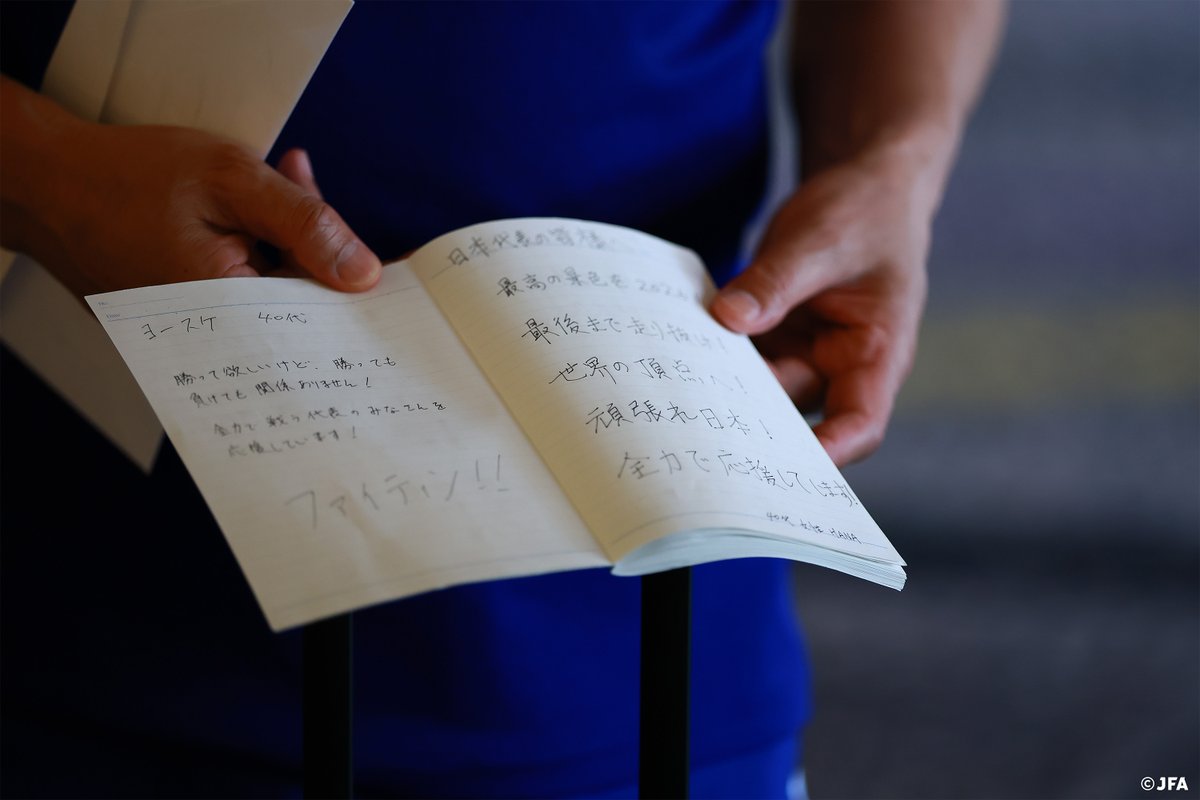 No.
Date
ヨースケ 40代
勝って欲しいけど、勝っても
負けても関係ありません!
全力で戦う代表のみなさんを
応援しています!
ファイティン!!
日本代表の皆様
最高の景色を
最後まで走り抜け!
世界の頂点へ!
頑張れ日本!
全力で応援してします!
40代 女性 HANA
©JFA